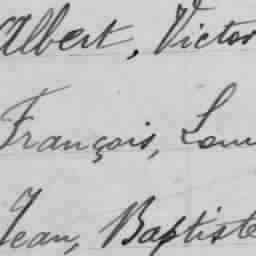 Albert, Victor
François, Lou
Jean, Baptiste